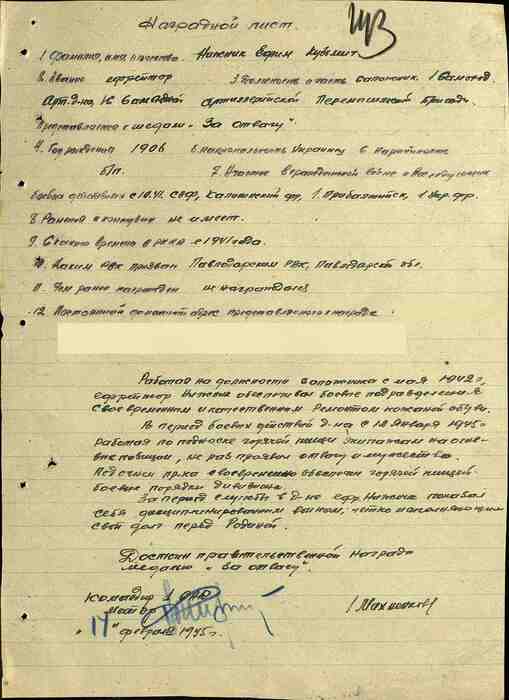 Наградной лист.
1. Фамилия, имя и отчество. Ниженик Ефим
2. Звание ефрейтор 3. Должность и часть сапожник 1 самоход.
Арт. д-на, 16 самоходной артиллерийской Перемышльской Бригады
Представляется к медали "За отвагу".
4. Год рождения 1906 5. национальность Украинец 6. Партийность
Б/п. 7. Участие в отечественной войне и последующих
боевых действиях с 10.41. СЗФ, Калининский фр, 1 Прибалтийск, 1 Укр. фр.
8. Ранения и контузии не имеет.
9. С какого времени в РККА с 1941 года.
10. Каким РВК призван Павлодарским РВК, Павлодарск обл.
11. Чем ранее награжден не награждался
12. Постоянный домашний адрес представляемого к награде
Работая на должности сапожника с мая 1942 г,
ефрейтор обеспечивал боевые подразделения
своевременным и качественным Ремонтом кожаной обуви.
В период боевых действий д-на с 12 Января 1945 г
работая по подноске горячей пищи экипажам на огне-
вые позиции, не раз проявил отвагу и мужество.
Под огнем пр-ка своевременно обеспечил горячей пищей
боевые порядки дивизиона.
За период службы в д-не ефр. показал
себя дисциплинированным воином, четко выполняющим
свой долг перед Родиной.
Достоин правительственной Награды
медалью "За отвагу".
Командир 1 д-на
Майор
"14" февраля 1945 г.